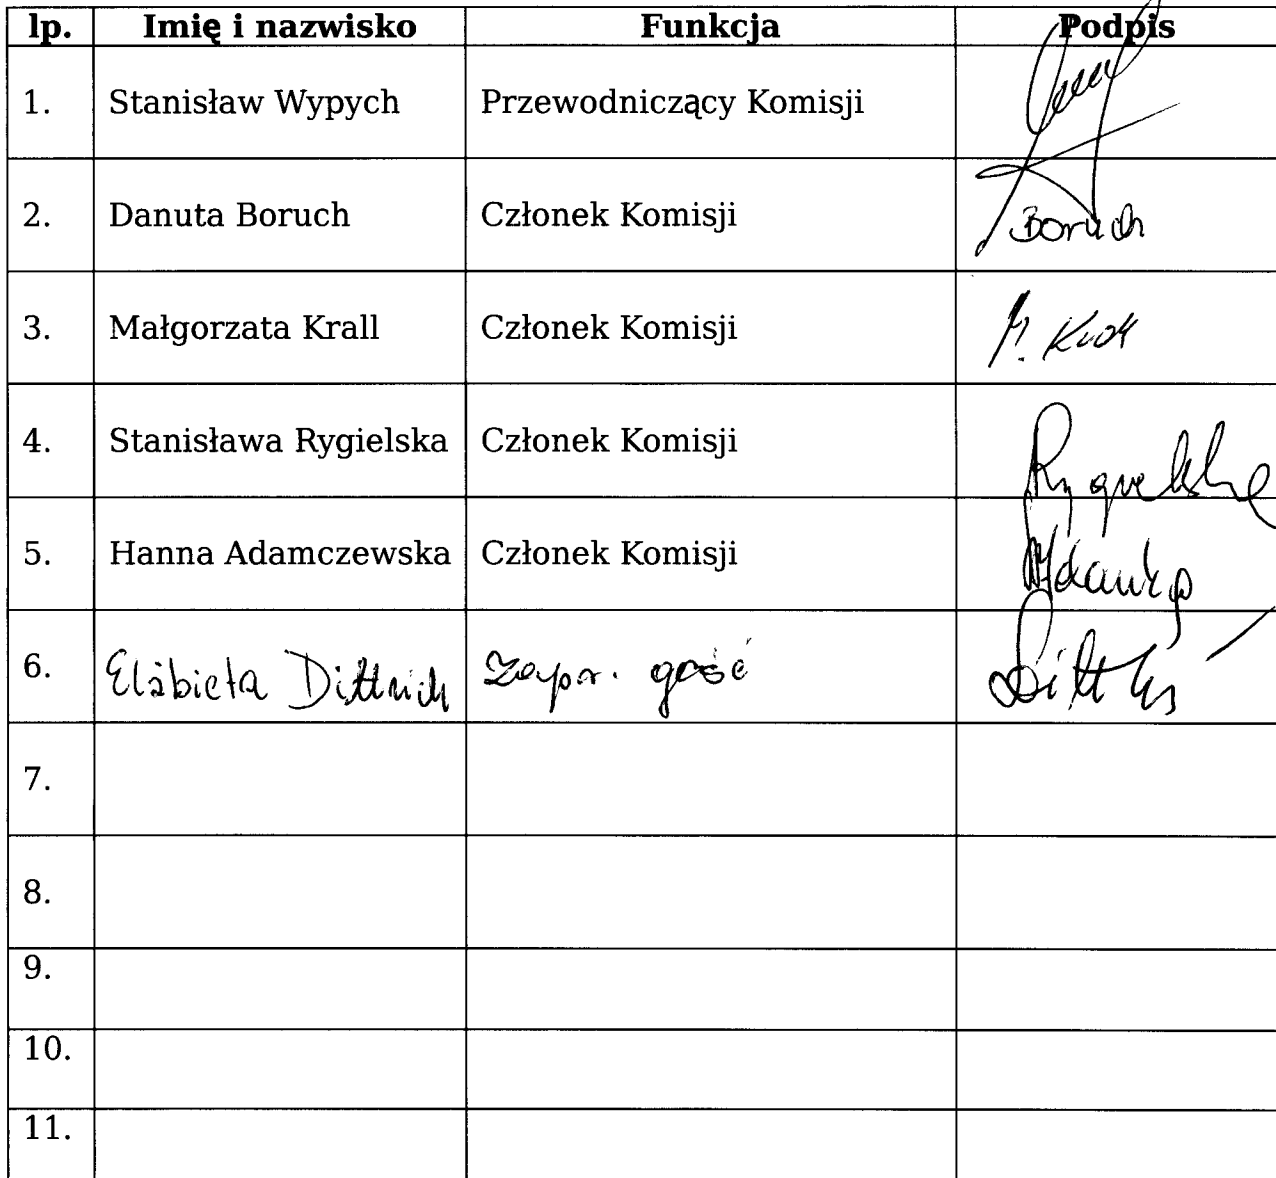 lp. Imię i nazwisko Funkcja Podpis
1. Stanisław Wypych Przewodniczący Komisji
2. Danuta Boruch Członek Komisji Boruch
3. Małgorzata Krall Członek Komisji
4. Stanisława Rygielska Członek Komisji
5. Hanna Adamczewska Członek Komisji
6. Elżbieta Dittrich zapr. gość
7.
8.
9.
10.
11.